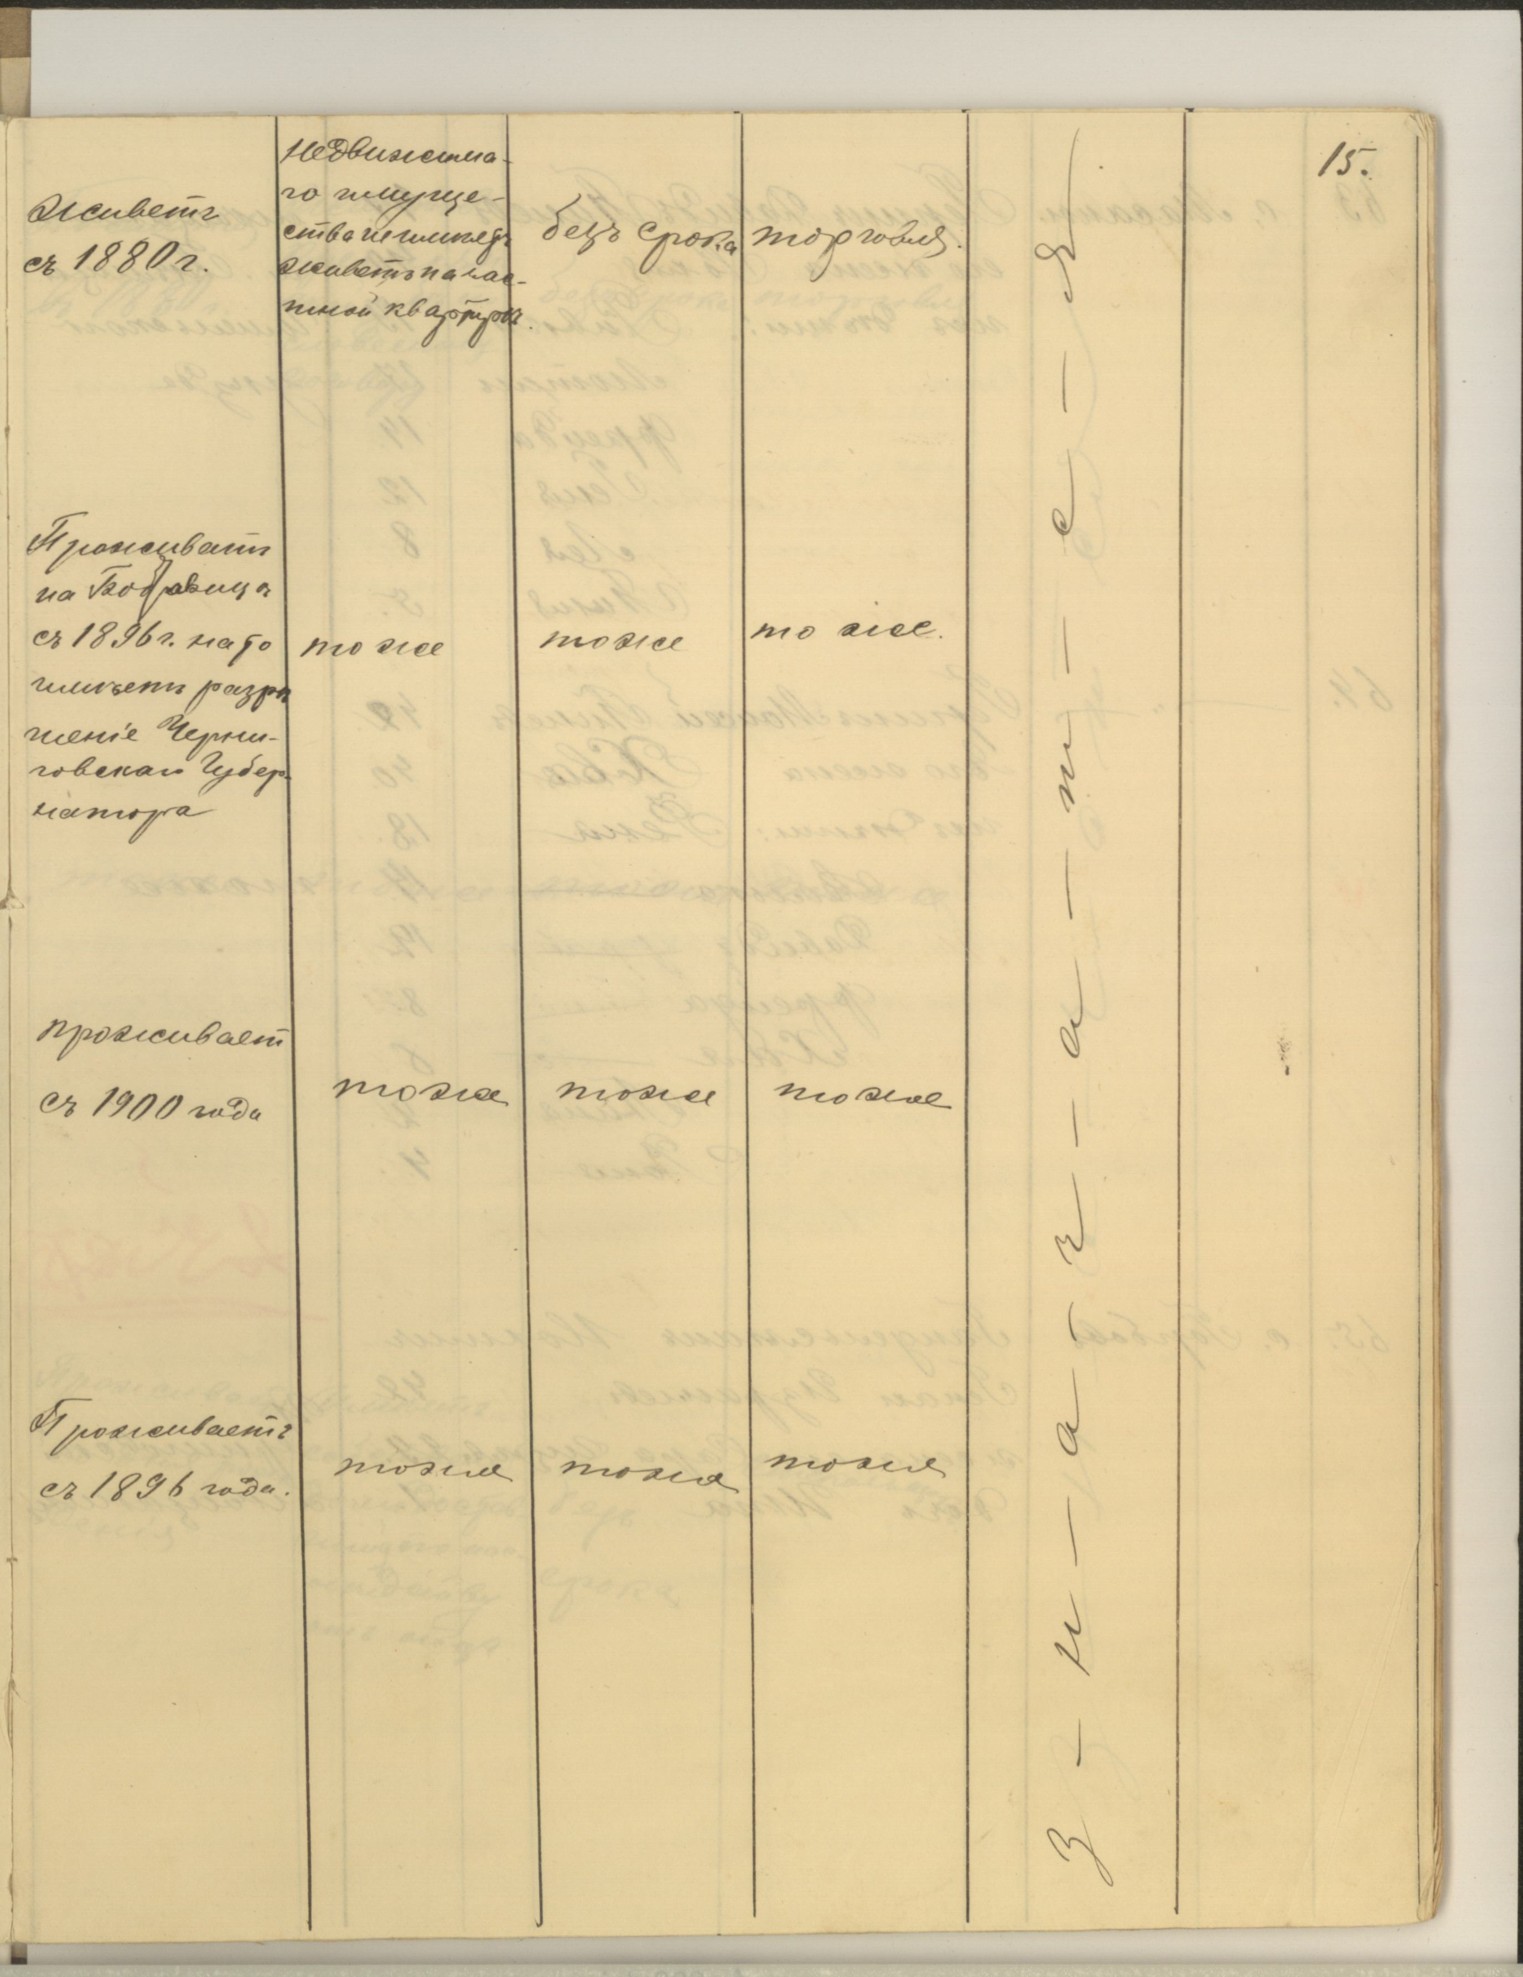 15.
Живетъ
съ 1880 г.
недвижима-
го имуще-
ства не имѣетъ
живетъ на час-
тной квартирѣ.
безъ срока
торговля.
Проживаетъ
на
съ 1896 г. на то
имѣетъ разрѣ
шеніе Черни-
говскаго Губер-
натора
тоже
тоже
то же.
проживает
съ 1900 года
тоже
тоже
тоже
Проживаетъ
съ 1896 года.
тоже
тоже
тоже
З - н - а - ч - а - т - с - я